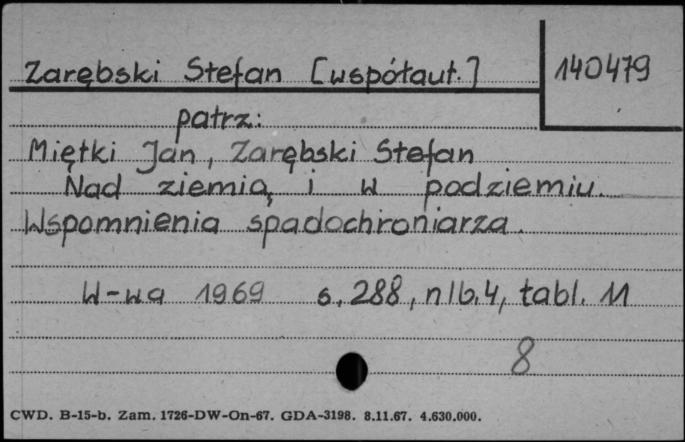 Zarębski Stefan [współaut.]
140479
patrz:
Miętki Jan, Zarębski Stefan
Nad ziemią i w podziemiu.
Wspomnienia spadochroniarza.
W-wa 1969 s. 288, nlb. 4, tabl. 11
8
CWD. B-15-b. Zam. 1726-DW-On-67. GDA-3198. 8.11.67. 4.630.000.